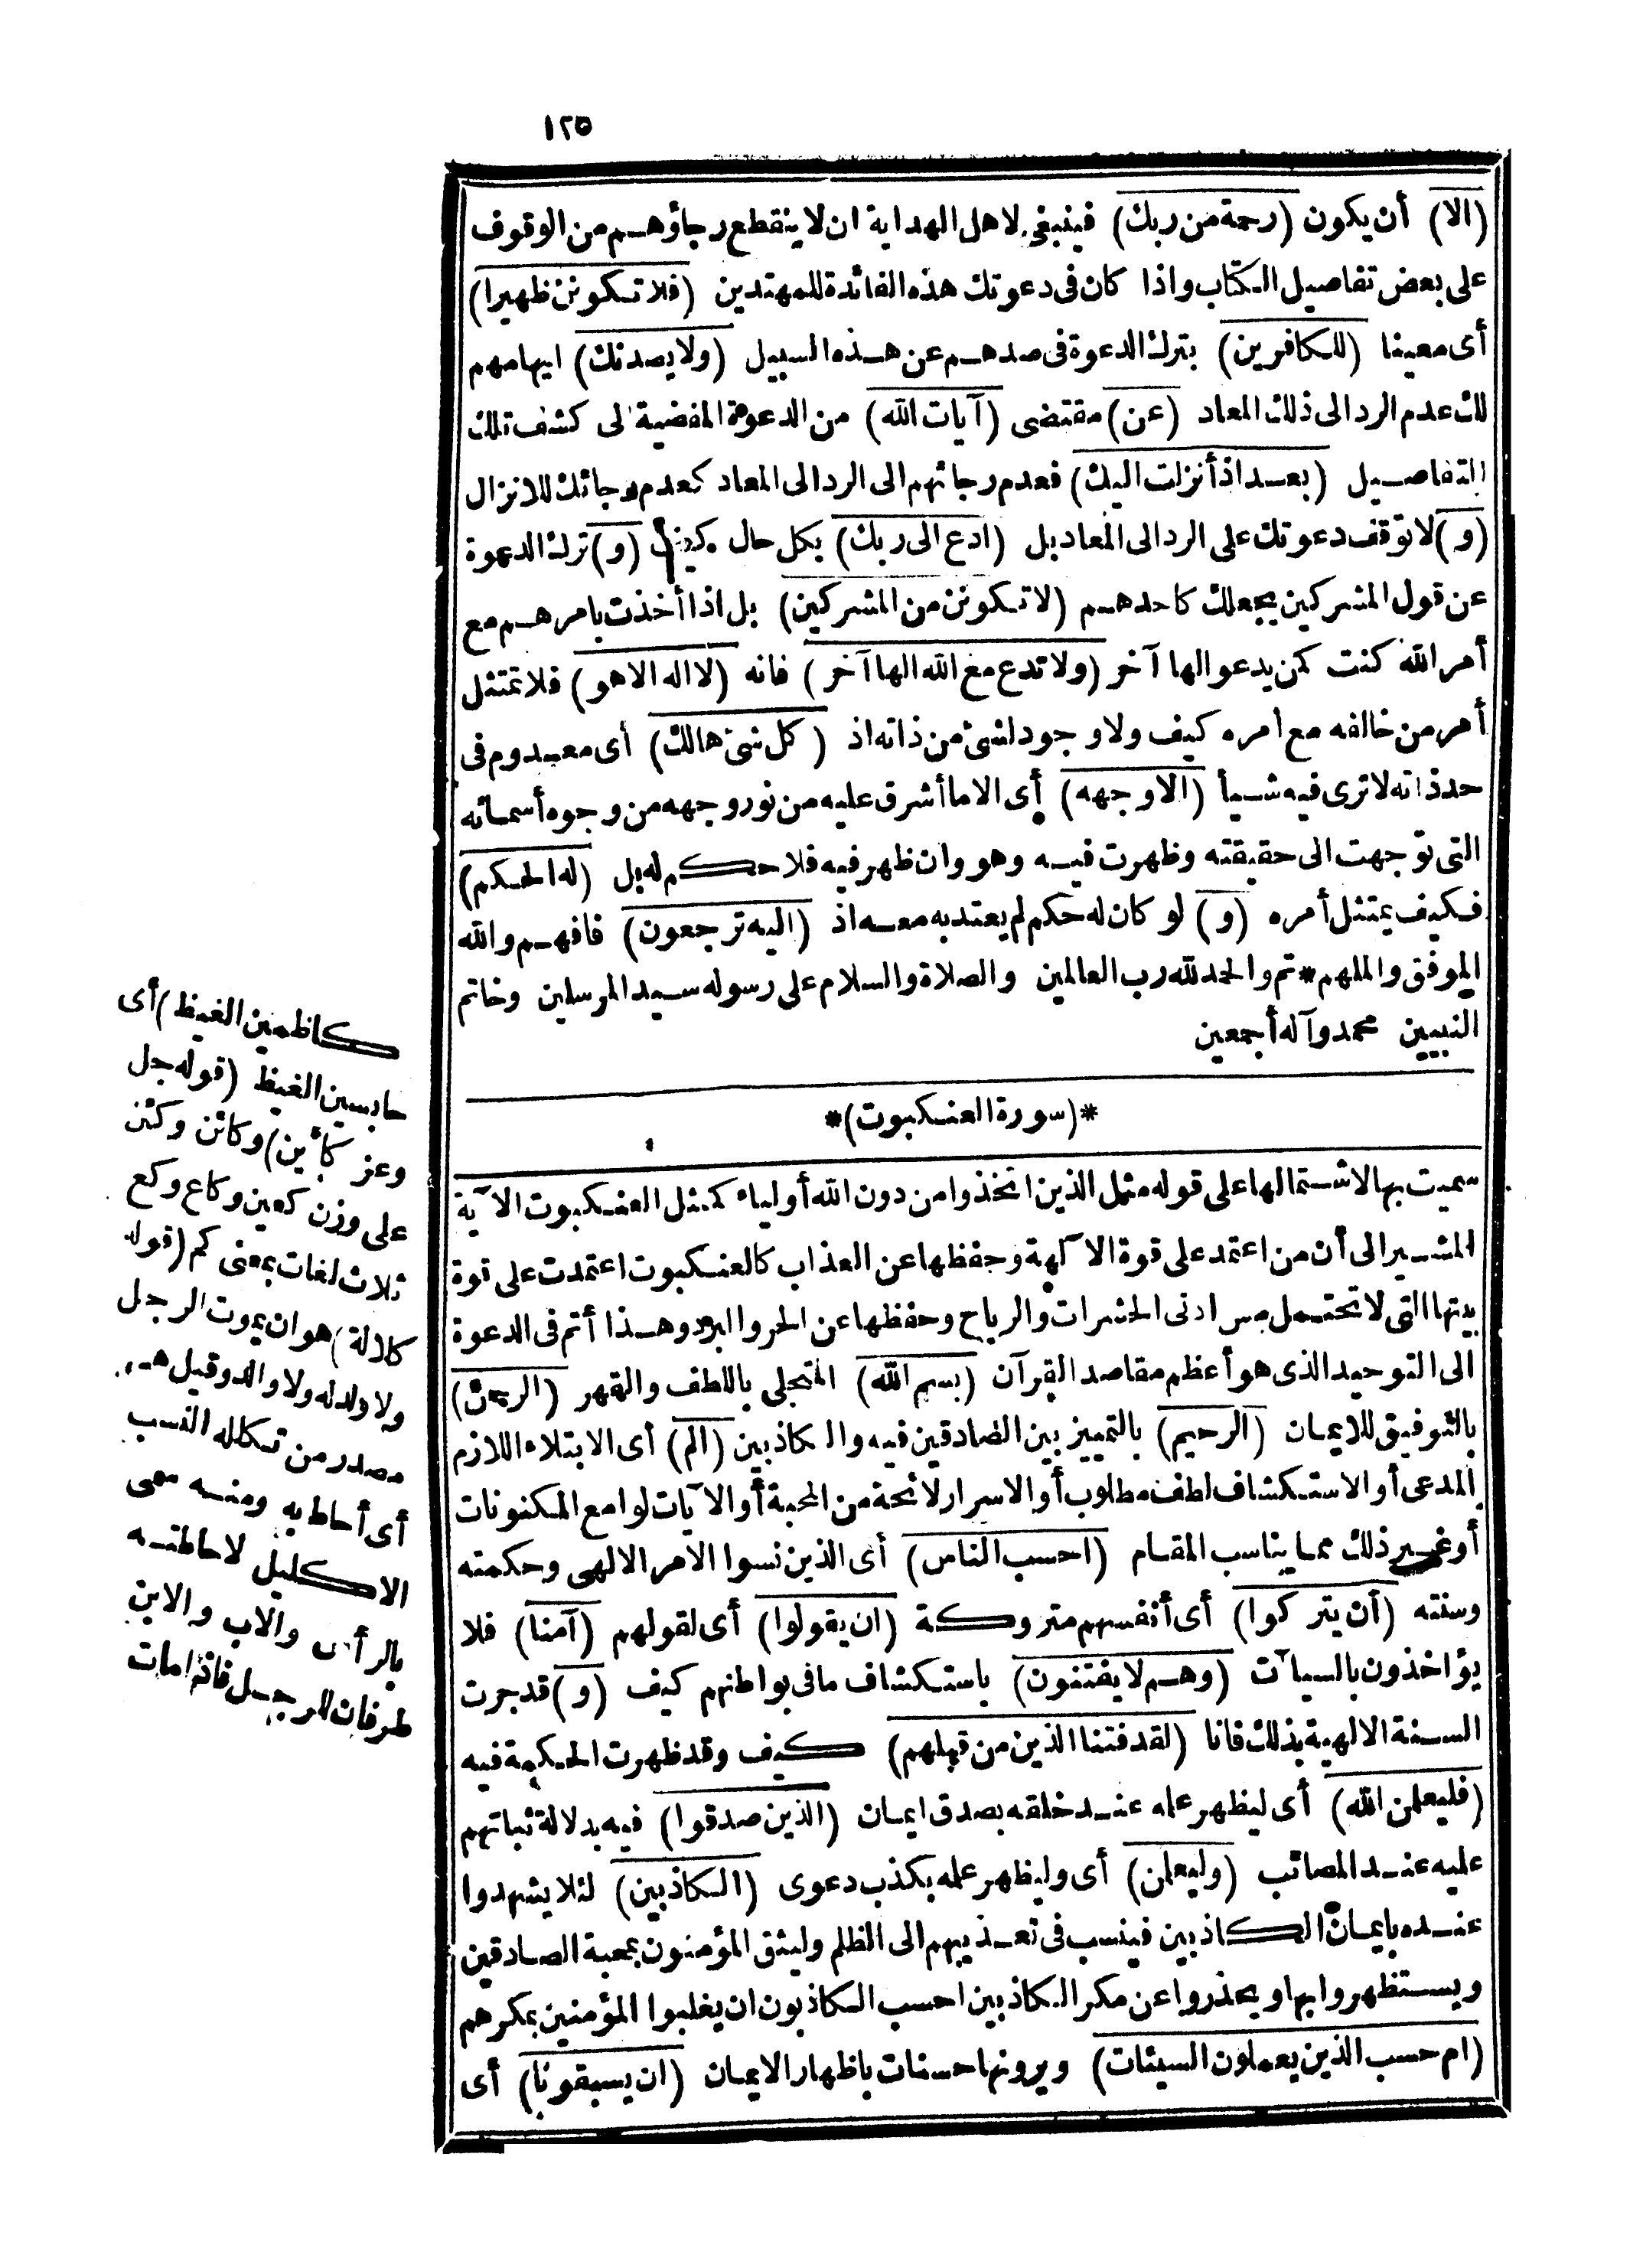 ١٢٥
(الا) أن يكون (رحمة من ربك) فينبغى لاهل الهداية ان لا ينقطع رجاؤهم من الوقوف
على بعض تفاصيل الكتاب واذا كان فى دعوتك هذه الفائدة للمهتدين (فلا تكونن ظهيرا)
أى معينا (للكافرين) بترك الدعوة فى صدهم عن هذه السبيل (ولا يصدنك) ايهامهم
لك عدم الرد الى ذلك المعاد (عن) مقتضى (آيات الله) من الدعوة المفضية الى كشف تلك
التفاصيل (بعد اذ أنزلت اليك) فعدم رجائهم الى الرد الى المعاد كعدم رجائك للانزال
(و) لا توقف دعوتك على الرد الى المعاد بل (ادع الى ربك) بكل حال (و) ترك الدعوة
عن قول المشركين يجعلك كاحدهم (لا تكونن من المشركين) بل اذا أخذت بامرهم مع
أمر الله كنت كمن يدعو الها آخر (ولا تدع مع الله الها آخر) فانه (لا اله الا هو) فلا تمتثل
أمر من خالفه مع أمره كيف ولا وجود لشئ من ذاته اذ (كل شئ هالك) أى معدوم فى
حد ذاته لا ترى فيه شيأ (الا وجهه) أى الا ما أشرق عليه من نور وجهه من وجوه أسمائه
التى توجهت الى حقيقته وظهرت فيه وهو وان ظهر فيه فلا حكم له بل (له الحكم)
فكيف يمتثل أمره (و) لو كان له حكم لم يعتد به معه اذ (اليه ترجعون) فافهم والله
الموفق والملهم * تم والحمد لله رب العالمين والصلاة والسلام على رسوله سيد المرسلين وخاتم
النبيين محمد وآله أجمعين
*(سورة العنكبوت)*
سميت بها لاشتمالها على قوله مثل الذين اتخذوا من دون الله أولياء كمثل العنكبوت الآية
المشير الى أن من اعتمد على قوة الآلهة وحفظها عن العذاب كالعنكبوت اعتمدت على قوة
بيتها التى لا تحتمل مس ادنى الحشرات والرياح وحفظها عن الحر والبرد وهذا أتم فى الدعوة
الى التوحيد الذى هو أعظم مقاصد القرآن (بسم الله) المتجلى باللطف والقهر (الرحمن)
بالتوفيق للايمان (الرحيم) بالتمييز بين الصادقين فيه والكاذبين (الم) أى الابتلاء اللازم
المدعى أو الاستكشاف لطف مطلوب أو الاسرار لائحة من المحبة أو الآيات لوامع المكنونات
أو غير ذلك مما يناسب المقام (احسب الناس) أى الذين نسوا الامر الالهى وحكمته
وسنته (أن يتركوا) أى أنفسهم متروكة (ان يقولوا) أى لقولهم (آمنا) فلا
يؤاخذون بالسيآت (وهم لا يفتنون) باستكشاف ما فى بواطنهم كيف (و) قد جرت
السنة الالهية بذلك فانا (لقد فتنا الذين من قبلهم) كيف وقد ظهرت الحكمة فيه
(فليعلمن الله) أى ليظهر علمه عند خلقه بصدق ايمان (الذين صدقوا) فيه بدلالة ثباتهم
عليه عند المصائب (وليعلمن) أى وليظهر علمه بكذب دعوى (الكاذبين) لئلا يشهدوا
عنده بايمان الكاذبين فينسب فى تعذيبهم الى الظلم وليثق المؤمنون بمحبة الصادقين
ويستظهروا بها ويحذروا عن مكر الكاذبين احسب الكاذبون ان يغلبوا المؤمنين بمكرهم
(ام حسب الذين يعملون السيئات) ويرونها حسنات باظهار الايمان (ان يسبقونا) أى
كاظمين الغيظ) أى
حابسين الغيظ (قوله جل
وعز كأين) وكائن وكئن
على وزن كعين وكاع وكع
ثلاث لغات بمعنى كم (قوله
كلالة) هو ان يموت الرجل
ولا ولد له ولا والد وقيل هى
مصدر من تكلله النسب
أى أحاط به ومنه سمى
الاكليل لاحاطته
بالرأس والاب والابن
طرفان للرجل فاذا مات